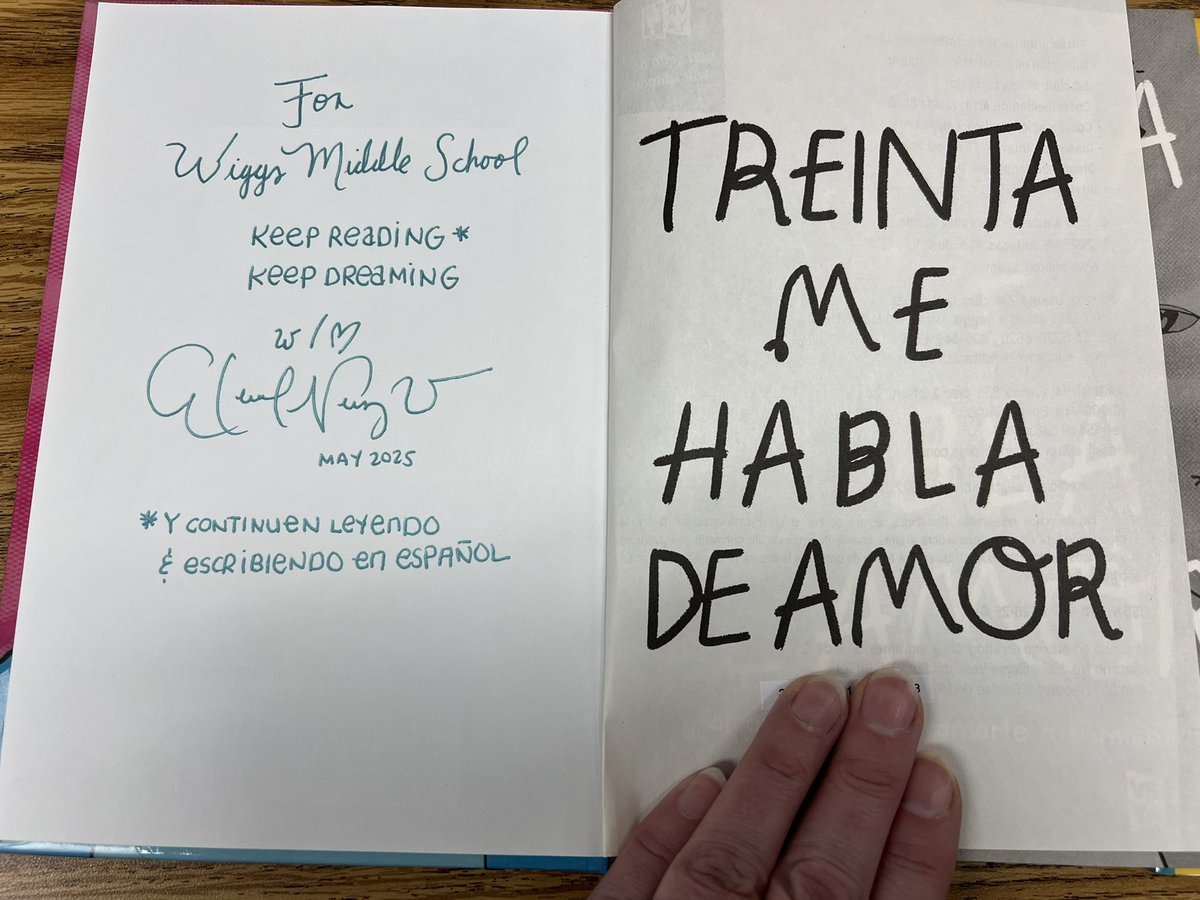 For
Wiggs Middle School
KEEP READING *
KEEP DREAMING
w/
MAY 2025
* Y CONTINUEN LEYENDO
& ESCRIBIENDO EN ESPAÑOL
TREINTA
ME
HABLA
DE AMOR